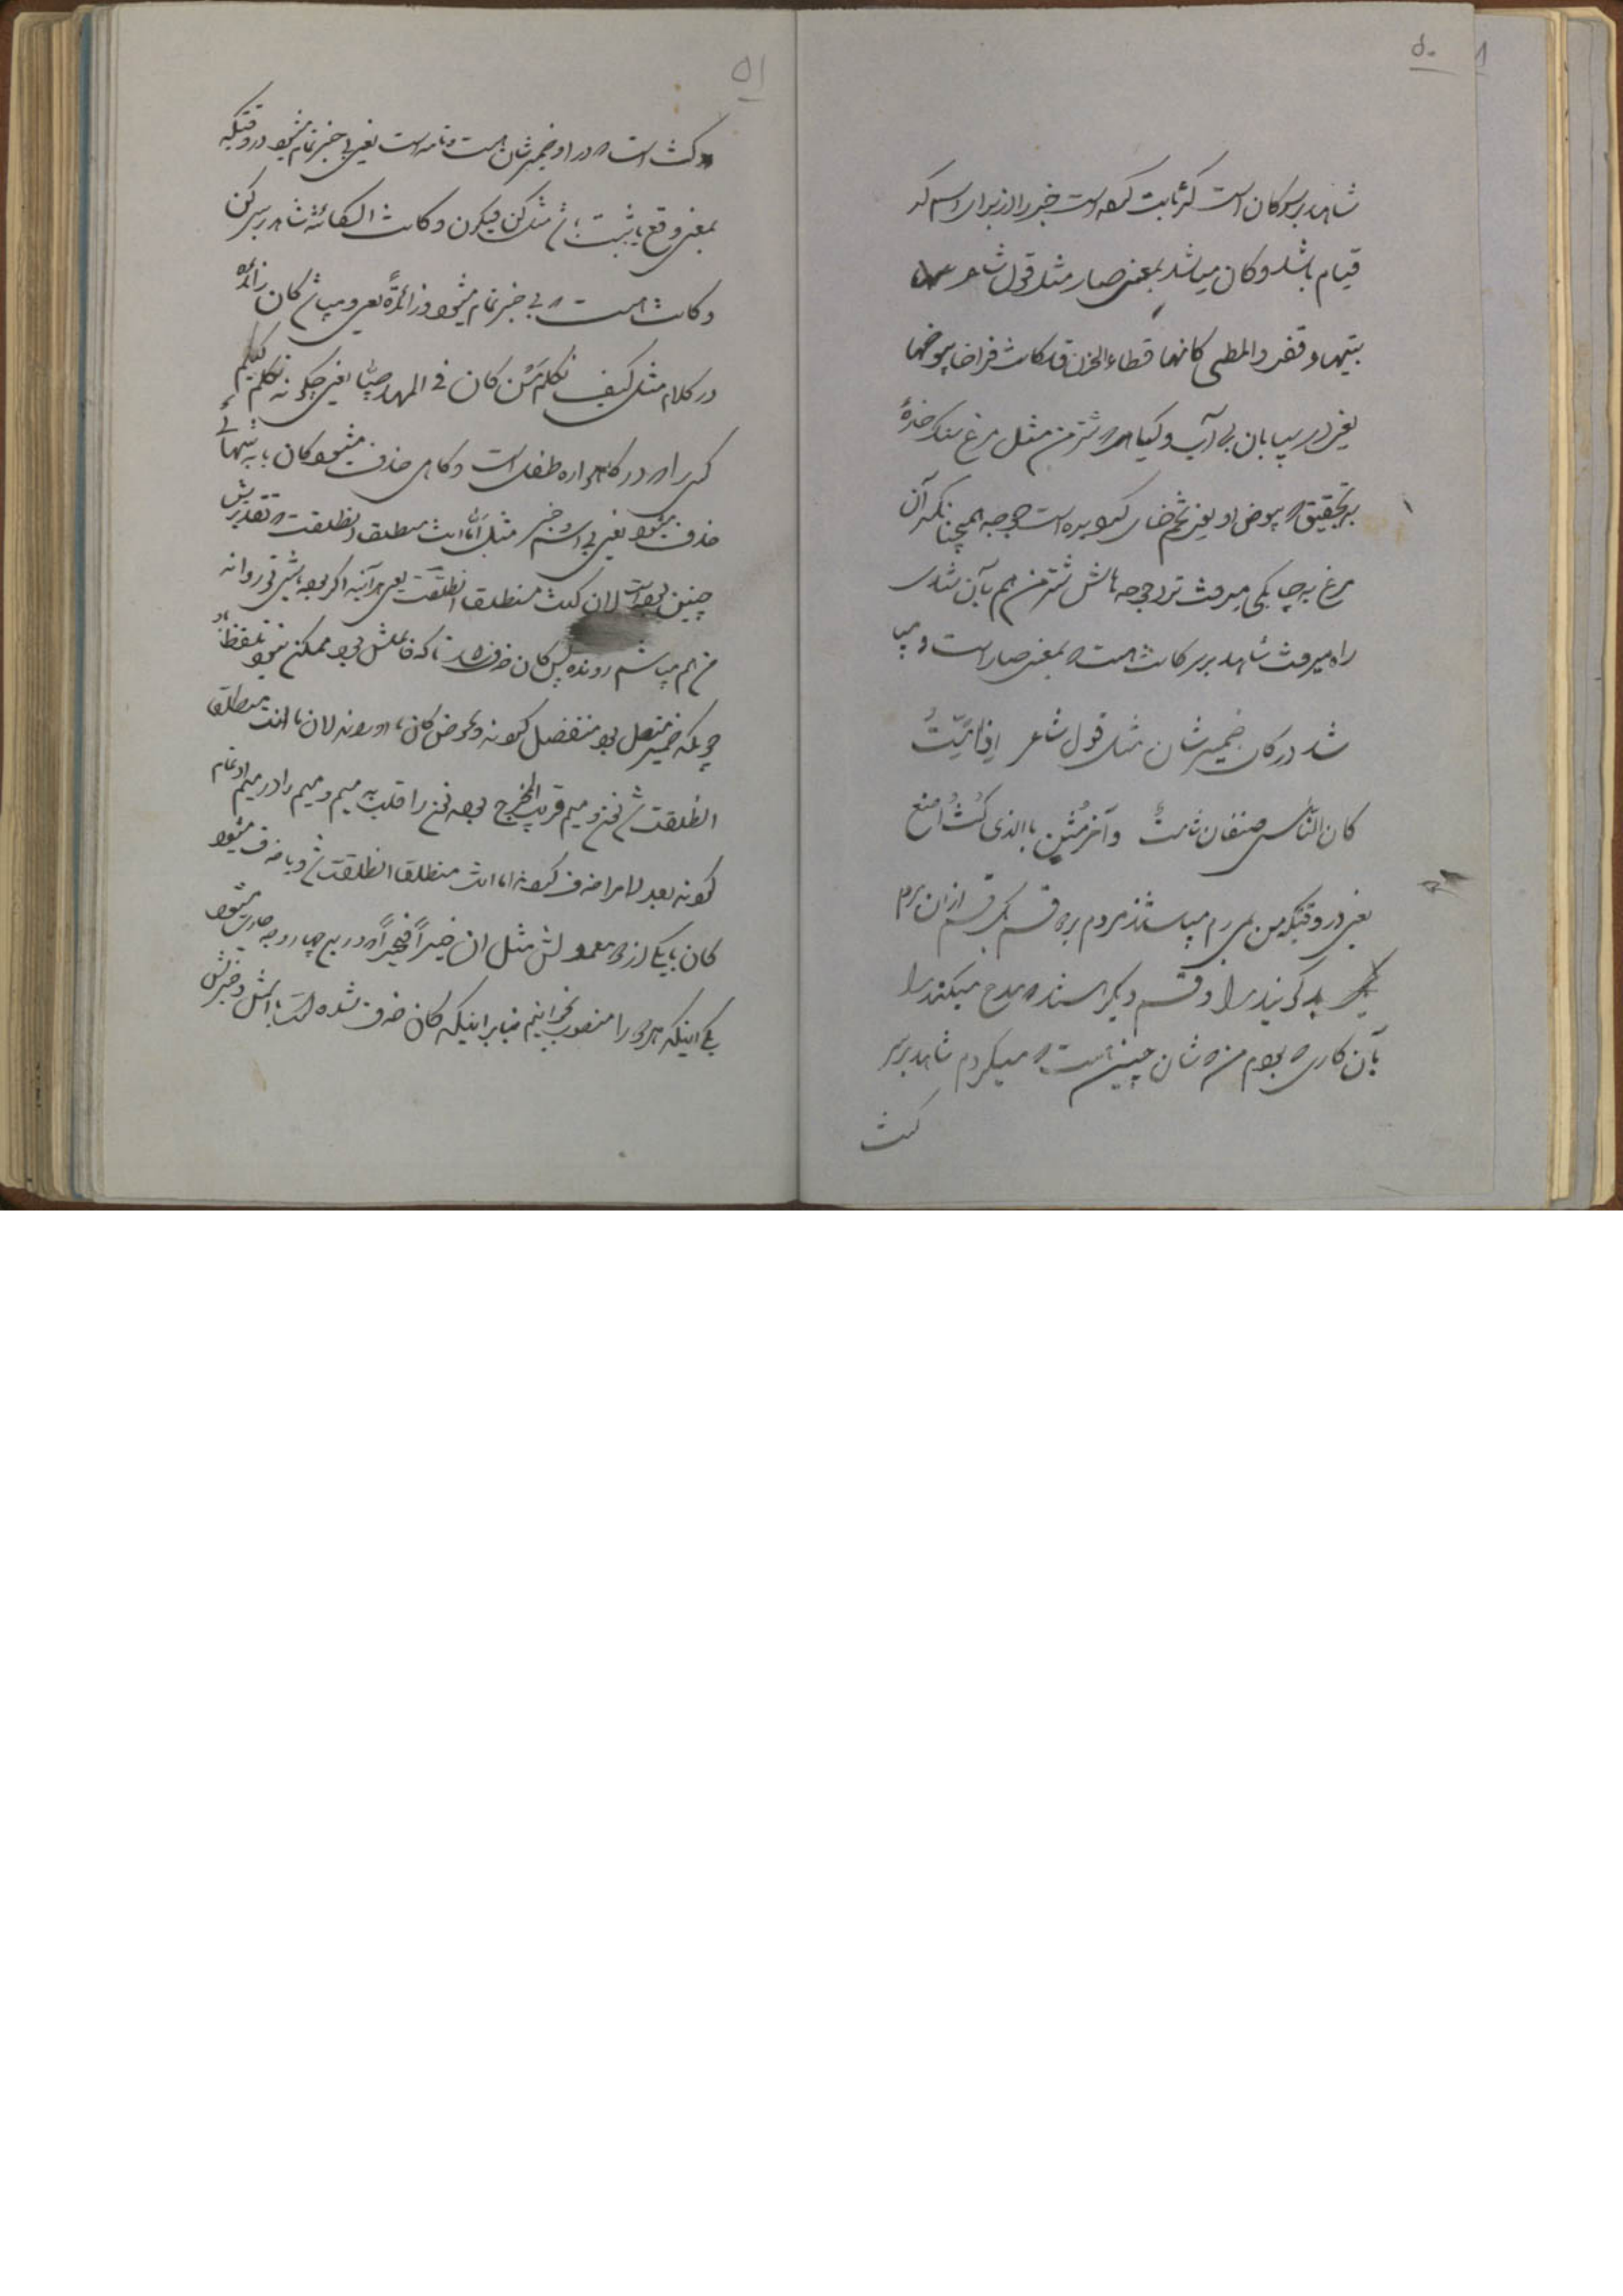 ۵۰
شاهد بر سر کان است که ثابت کرده است خبر را از برای اسم که
قیام باشد و کان میباشد بمعنی صار مثل قول شاعر
بتیهاء قفر والمطی کانها قطاء الحزن قد کانت فراخا بیوضها
یعنی در بیابان بی آب و گیاه که شتر من مثل مرغ سنک خوارهٔ
به تحقیق که بیوض او یعنی تخم های جوجه همچنانکه آن
مرغ به چابکی میرفت نزد جوجه هایش شتر من هم بآن تندی
راه میرفت شاهد بر سر کانت است که بمعنی صار است و
شد در کان ضمیر شان مثل قول شاعر اذا متُّ
کان الناس صنفان شامتٌ وآخر مُثنٍ باالذی کُنتُ اصنع
یعنی در وقتیکه من بمیرم میباشند مردم بر دو قسم یک قسم از آن مردم
بد گویند مرا و قسم دیگر مدح میکنند مرا
بآن کاری که بودم من که شان چنین است که میکردم شاهد بر سر
کنت
۵۱
کنت است که در او ضمیر شان است و تامه است یعنی بی خبر تمام میشود در وقتیکه
بمعنی وقع یا ثبت باشد مثل کن فیکون و کانت الکائنه شاهد بر سر کن
و کانت است که بی خبر تمام میشود و زائدةً یعنی و میباشد کان زائده
در کلام مثل کیف نکلم مَن کان فی المهد صبیّا یعنی چگونه تکلم کنیم
کسی را که در گاهواره طفل است و گاهی حذف میشود کان یا به تنهائی
حذف میشود یعنی بی اسم و خبر مثل أمّا انت منطلقا انطلقت که تقدیرش
چنین بوده است لان کنت منطلقا انطلقت یعنی هر آینه اگر بوده باشی تو روانه
من هم میباشم رونده پس کان حذف شد تا که فاعلش بود ممکن نبود تلفظ باو
چونکه ضمیر متصل بود منفصل کردند و بعوض کان ما آوردند لان ما انت منطلقا
انطلقت شد نون و میم قریب المخرج بوده نون را قلب به میم و میم را در میم ادغام
کردند بعد لام را حذف کردند اما انت منطلقا انطلقت شد و یا حذف میشود
کان با یکی از دو معمولش مثل ان خیراً فخیراً که در چهار وجه جاری میشود
یکی اینکه هر دو را منصوب بخوانیم بنا بر اینکه کان حذف شده است با اسمش و خبرش